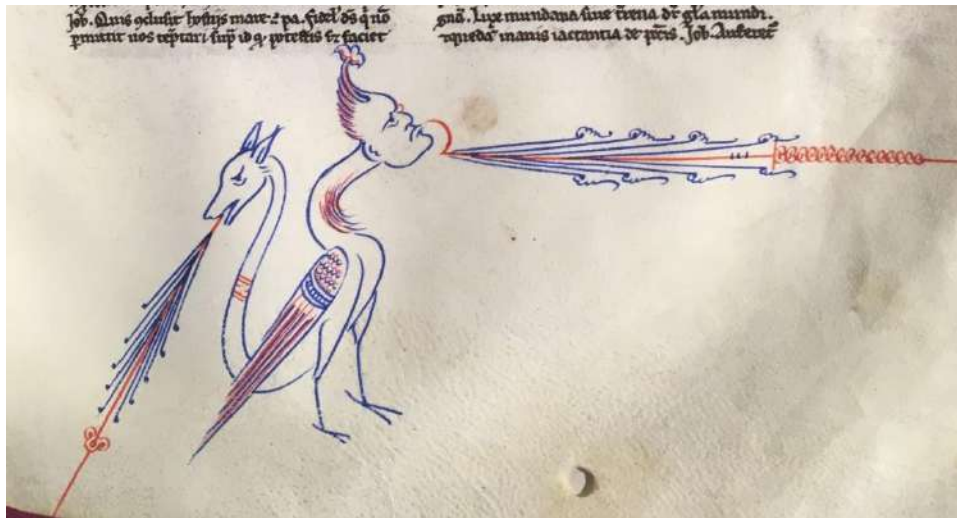 Job. Quis ꝯclusit hostiis mare. ⁊ pa. fidel' ds̄ q̄ nō
ꝑmittit uos tēptari suꝑ id qͥ potestis sꝫ faciet
gnā. Lux mundana siue t̄rena dr̄ gl̄a mundi.
inanis iactantia de Job.